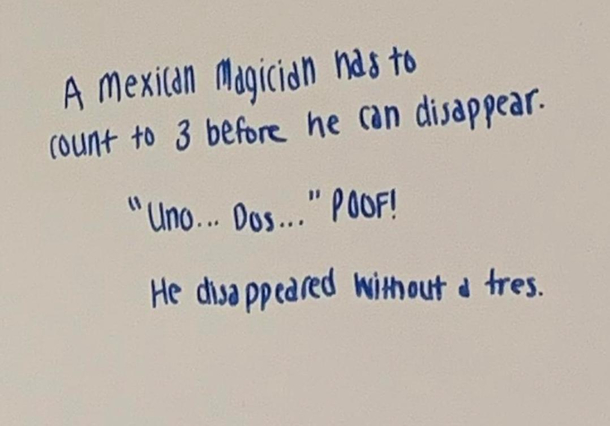 A Mexican Magician has to
count to 3 before he can disappear.
"Uno... Dos..." POOF!
He disappeared without a tres.